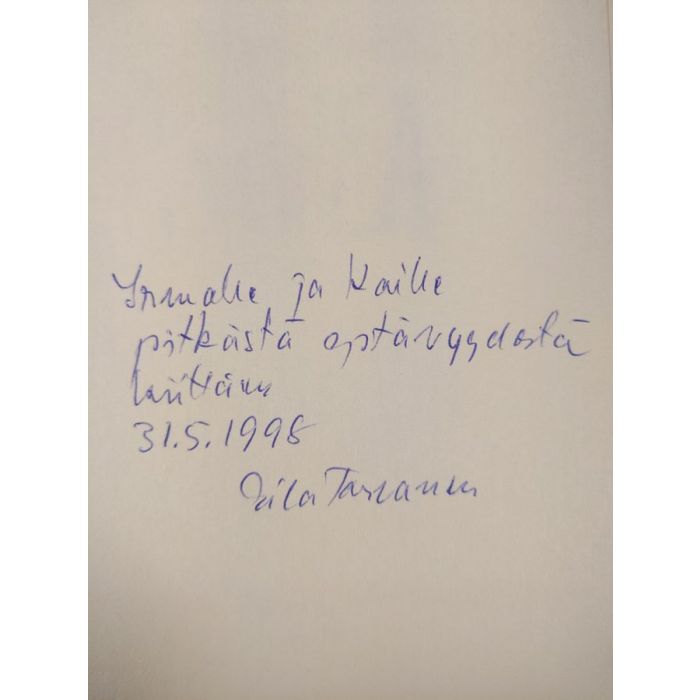 Irmalle ja Kaille
pitkästä ystävyydestä
kiittäen
31.5.1998